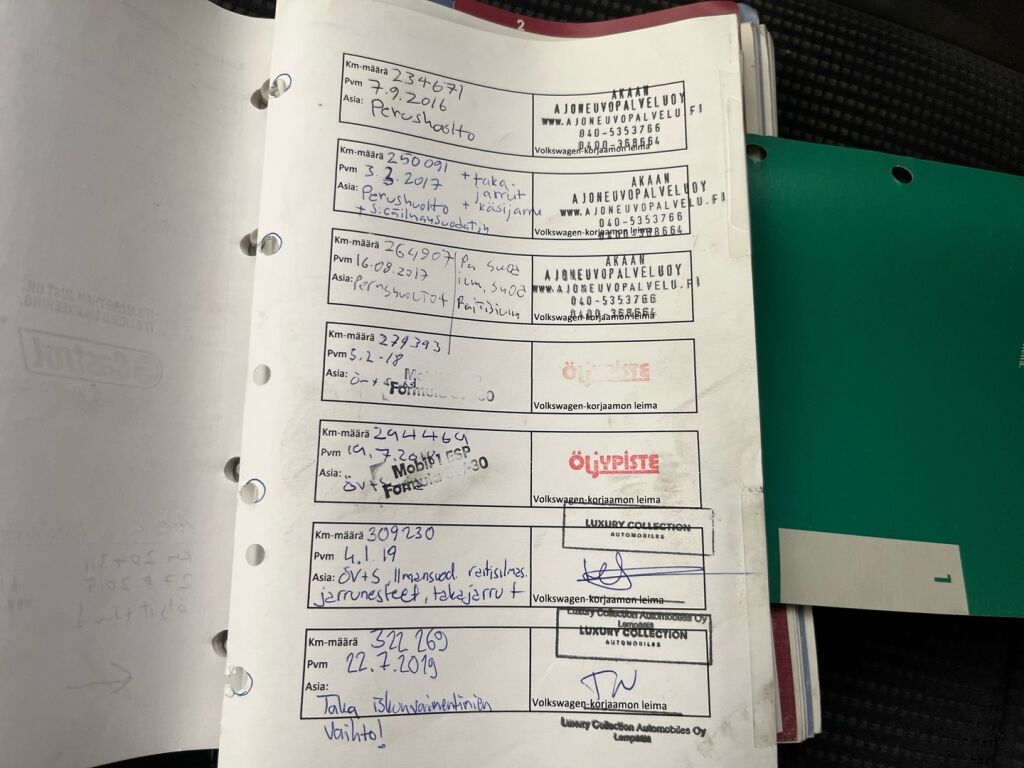 2
Km-määrä 234671
Pvm 7.9.2016
Asia: Perushuolto
AKAAN
AJONEUVOPALVELU OY
www.AJONEUVOPALVELU.FI
040-5353766
0400-368664
Volkswagen-korjaamon leima
Km-määrä 250091 + taka-
Pvm 3.3.2017 jarrut
Asia: Perushuolto + käsijarru
+ sisäilmansuodatin
AKAAN
AJONEUVOPALVELUOY
www.AJONEUVOPALVELU.FI
040-5353766
0400-368664
Volkswagen-korjaamon leima
Km-määrä 264907 Pa suod
Pvm 16.08.2017 ilm. suod
Asia: Perushuolto+
AKAAN
AJONEUVOPALVELUOY
www.AJONEUVOPALVELU.FI
040-5353766
0400-368664
Volkswagen-korjaamon leima
Km-määrä 279393
Pvm 5.2-18
Asia:
Formula
ÖLJYPISTE
Volkswagen-korjaamon leima
Km-määrä 294469
Pvm 19.7.2018
Asia: ÖV+S
Mobil 1 ESP
Formula 5W-30
ÖLJYPISTE
Volkswagen-korjaamon leima
Km-määrä 309230
Pvm 4.1.19
Asia: ÖV+S, Ilmansuod. raitisilmas.
jarrunesteet, takajarru +
LUXURY COLLECTION
AUTOMOBILES
Volkswagen-korjaamon leima
Luxury Collection Automobiles Oy
Lempäälä
Km-määrä 322 269
Pvm 22.7.2019
Asia:
Taka iskunvaimentimien
vaihto!
LUXURY COLLECTION
AUTOMOBILES
TW
Volkswagen-korjaamon leima
Luxury Collection Automobiles Oy
Lempäälä
Castrol
1